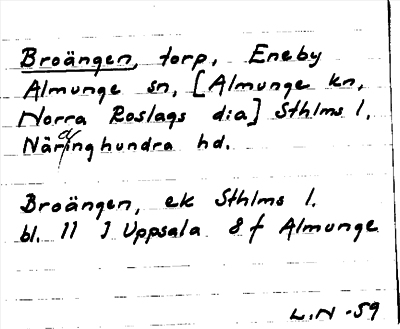 Broängen, torp, Eneby
Almunge sn, [Almunge kn,
Norra Roslags dia] Sthlms l,
Närdinghundra hd.
Broängen, ek Sthlms l.
bl. 11 I Uppsala 8 f Almunge
L.N -59